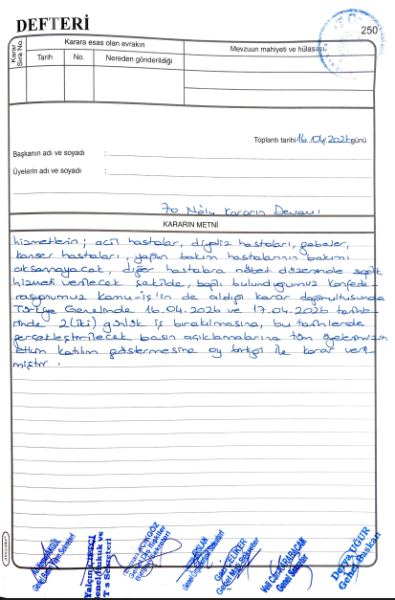 DEFTERİ
250
Karar Sıra No.
Karara esas olan evrakın
Mevzuun mahiyeti ve hülasası
Tarih
No.
Nereden gönderildiği
Toplantı tarihi 16/04/2026 günü
Başkanın adı ve soyadı :
Üyelerin adı ve soyadı :
70 Nolu Kararın Devamı
KARARIN METNİ
hizmetlerin; acil hastalar, diyaliz hastaları, gebeler,
kanser hastaları, yoğun bakım hastalarının bakımı
aksamayacak, diğer hastalara nöbet düzeninde sağlık
hizmeti verilecek şekilde, bağlı bulunduğumuz konfede-
rasyonumuz Kamu-iş'in de aldığı karar doğrultusunda
Türkiye Genelinde 16.04.2026 ve 17.04.2026 tarihle-
rinde 2(iki) günlük iş bırakılmasına, bu tarihlerde
gerçekleştirilecek basın açıklamalarına tüm üyelerimizin
etkin katılım göstermesine oy birliği ile karar veril-
miştir.
Genel Başkan
Derya UĞUR
Genel Sekreter
Gazi ÇELİKER
Genel Mali Sekreter